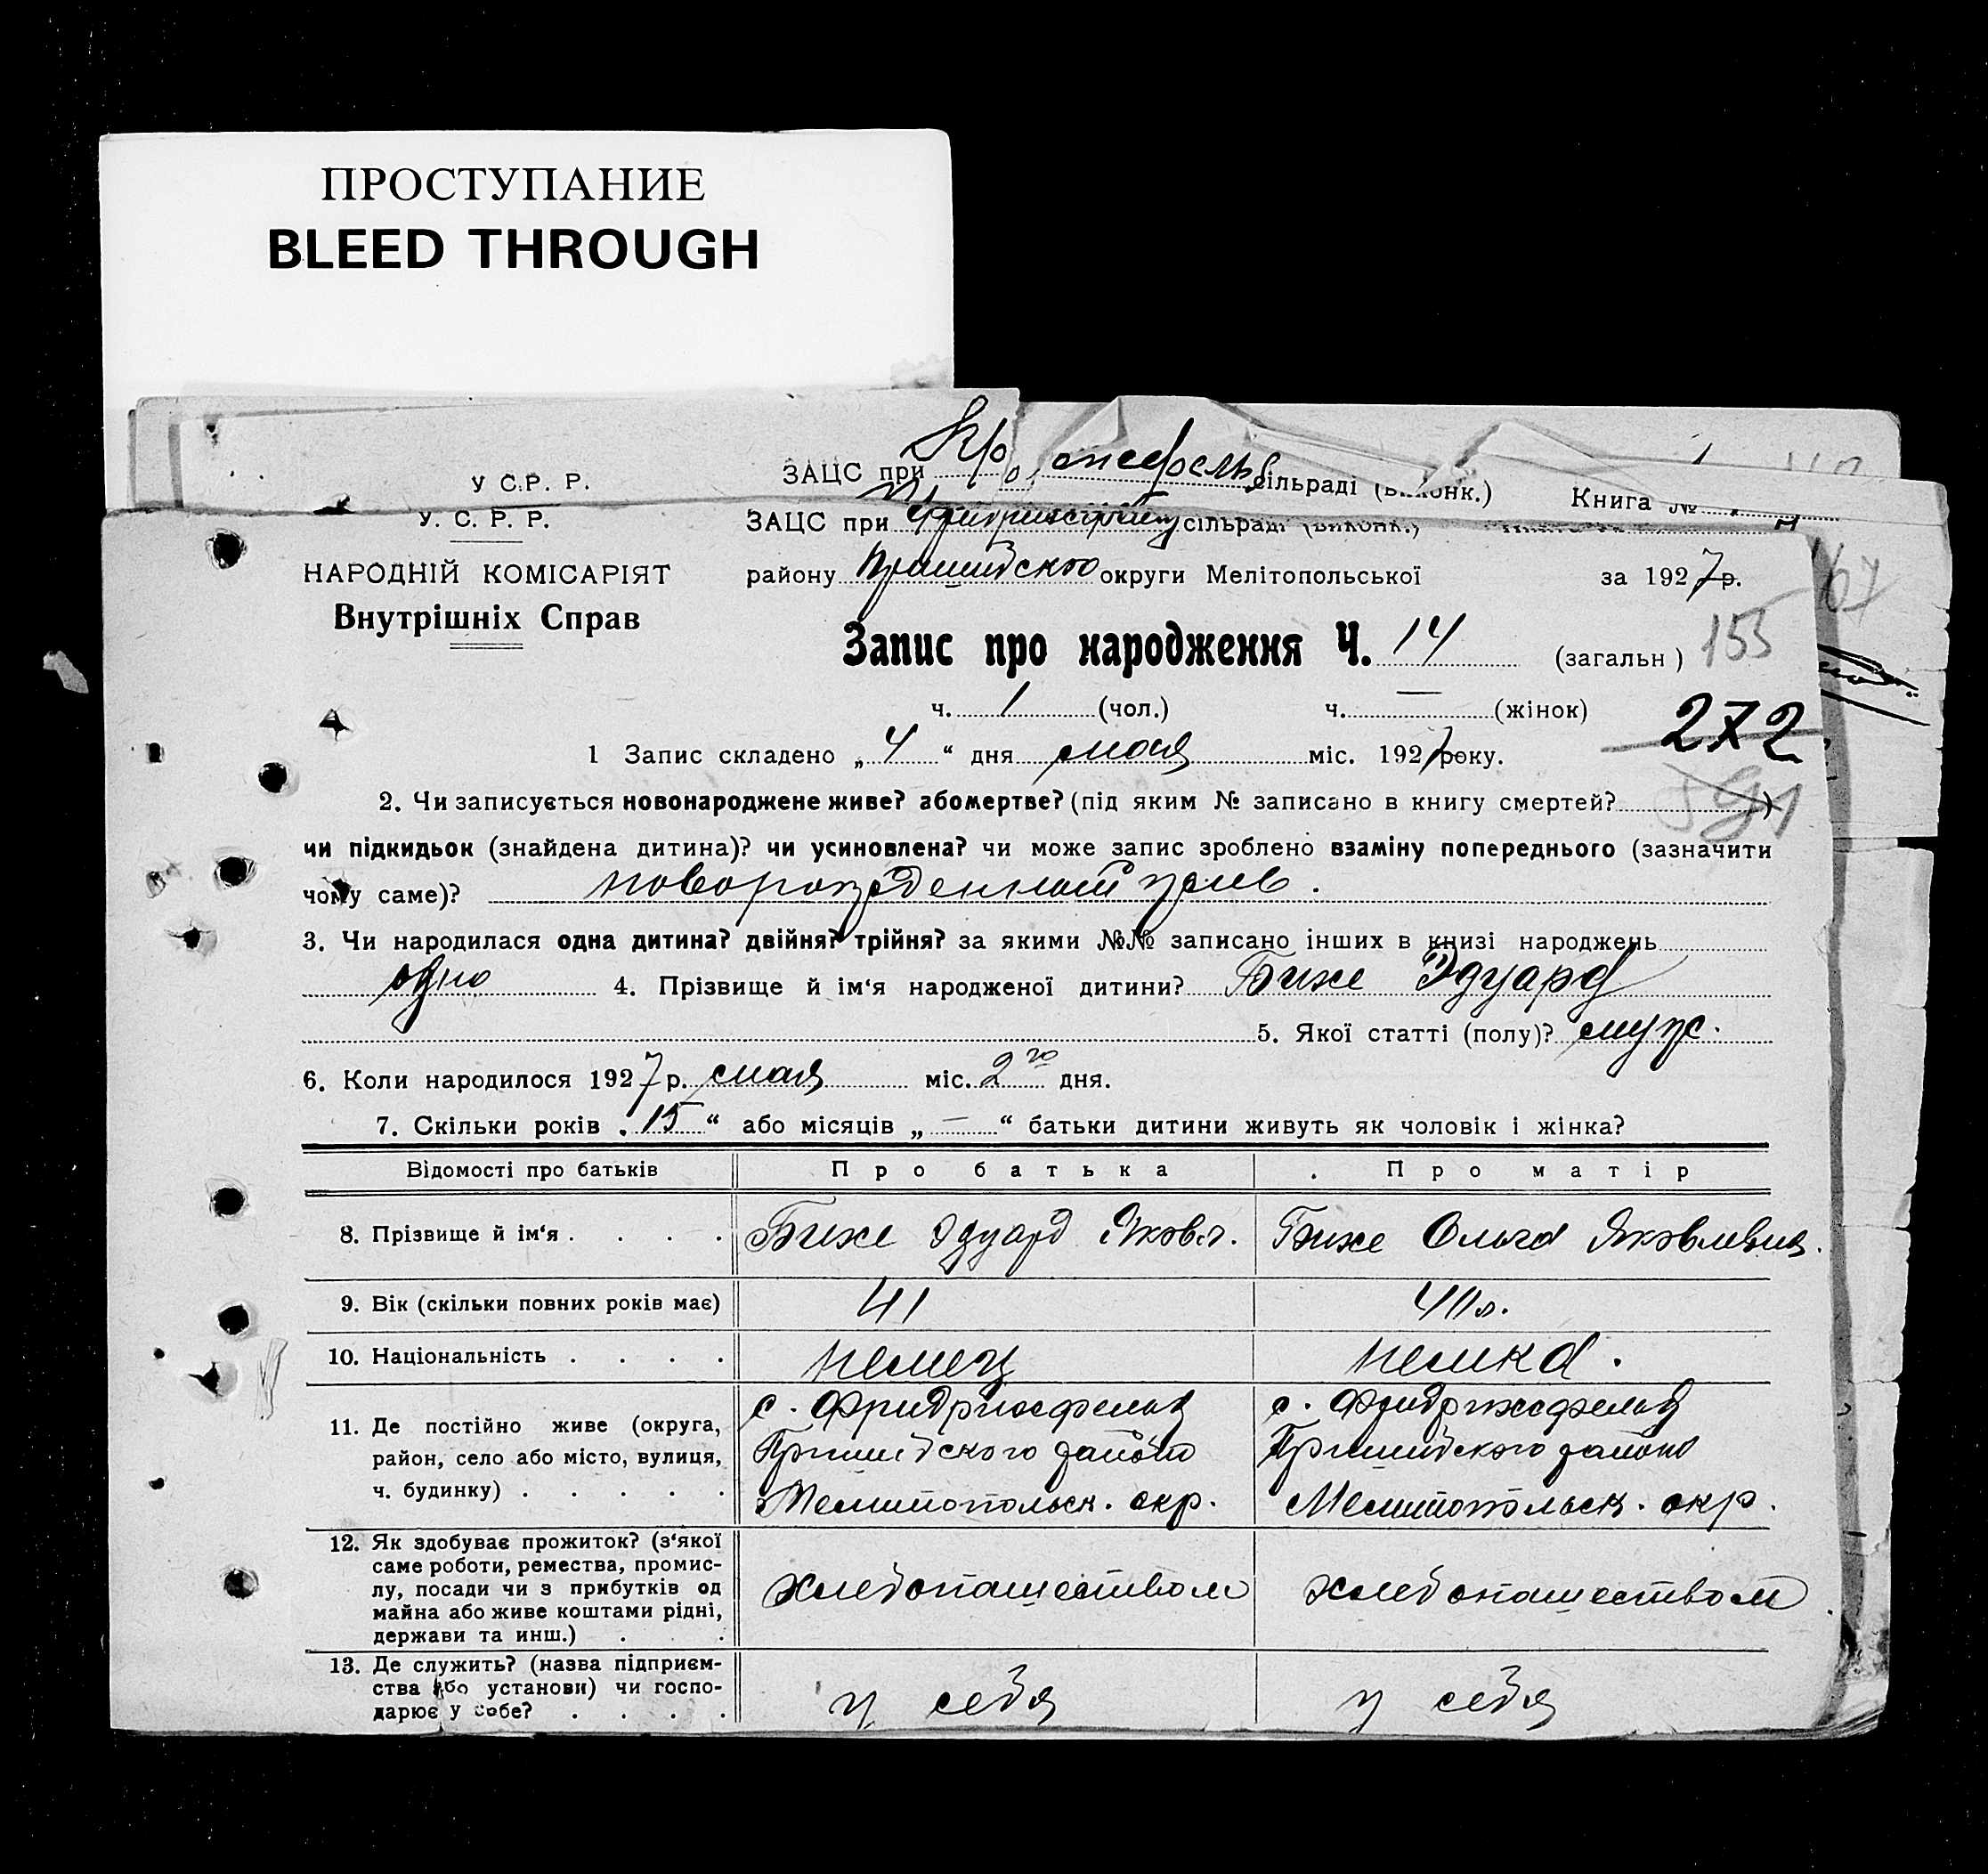 ПРОСТУПАНИЕ
BLEED THROUGH
У С.Р. Р. ЗАЦС при сільраді Книга №
У. С. Р. Р. ЗАЦС при сільраді
НАРОДНІЙ КОМІСАРІЯТ району Пришибского округи Мелітопольської за 1927 р.
Внутрішніх Справ
67
Запис про народження Ч. 14 (загальн) 155
ч. 1 (чол.) ч. — (жінок)
272
1 Запис складено „ 4 “ дня мая міс. 1927 року.
2. Чи записується новонароджене живе? або мертве? (під яким № записано в книгу смертей? )
591
чи підкидьок (знайдена дитина)? чи усиновлена? чи може запис зроблено взаміну попереднього (зазначити
чому саме)? новорожденный жив.
3. Чи народилася одна дитина? двійня? трійня? за якими №№ записано інших в книзі народжень
одно 4. Прізвище й ім'я народженої дитини? Биже Эдуард
5. Якої статті (полу)? муж.
6. Коли народилося 1927 р. мая міс. 2 го дня.
7. Скільки років „ 15 “ або місяців „ — “ батьки дитини живуть як чоловік і жінка?
Відомості про батьків Про батька Про матір
8. Прізвище й ім'я . . . . Биже Эдуард Яковл. Биже Ольга Яковлевна.
9. Вік (скільки повних років має) 41 40 л.
10. Національність . . . . немец немка.
11. Де постійно живе (округа, с. Фридрихсфельд с. Фридрихсфельд
район, село або місто, вулиця, Пришибского района Пришибского района
ч. будинку) . . . . . Мелитопольск. окр. Мелитопольск. окр.
12. Як здобуває прожиток? (з'якої
саме роботи, ремества, промис-
лу, посади чи з прибутків од хлебопашеством хлебопашеством
майна або живе коштами рідні,
держави та инш.) . . .
13. Де служить? (назва підприєм-
ства або установи) чи госпо- у себя у себя
дарює у собе? . . . .